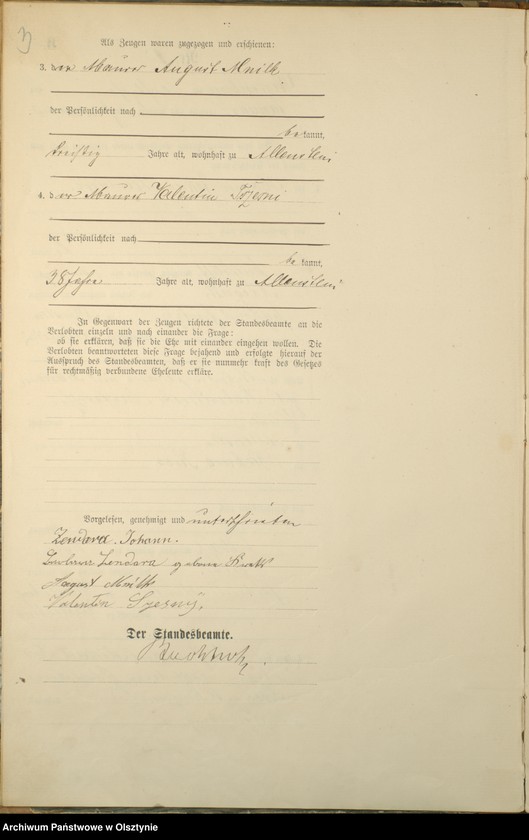 3
Als Zeugen waren zugezogen und erschienen:
3. der Maurer August Mnilk
der Persönlichkeit nach
bekannt,
dreißig Jahre alt, wohnhaft zu Allenstein
4. der Maurer Valentin
der Persönlichkeit nach
bekannt,
38 Jahre Jahre alt, wohnhaft zu Allenstein
In Gegenwart der Zeugen richtete der Standesbeamte an die
Verlobten einzeln und nach einander die Frage:
ob sie erklären, daß sie die Ehe mit einander eingehen wollen. Die
Verlobten beantworteten diese Frage bejahend und erfolgte hierauf der
Ausspruch des Standesbeamten, daß er sie nunmehr kraft des Gesetzes
für rechtmäßig verbundene Eheleute erkläre.
Vorgelesen, genehmigt und unterschrieben
Zendara Johann.
Zendara geborne
August Mnilk
Valentin Szesny.
Der Standesbeamte.
Archiwum Państwowe w Olsztynie